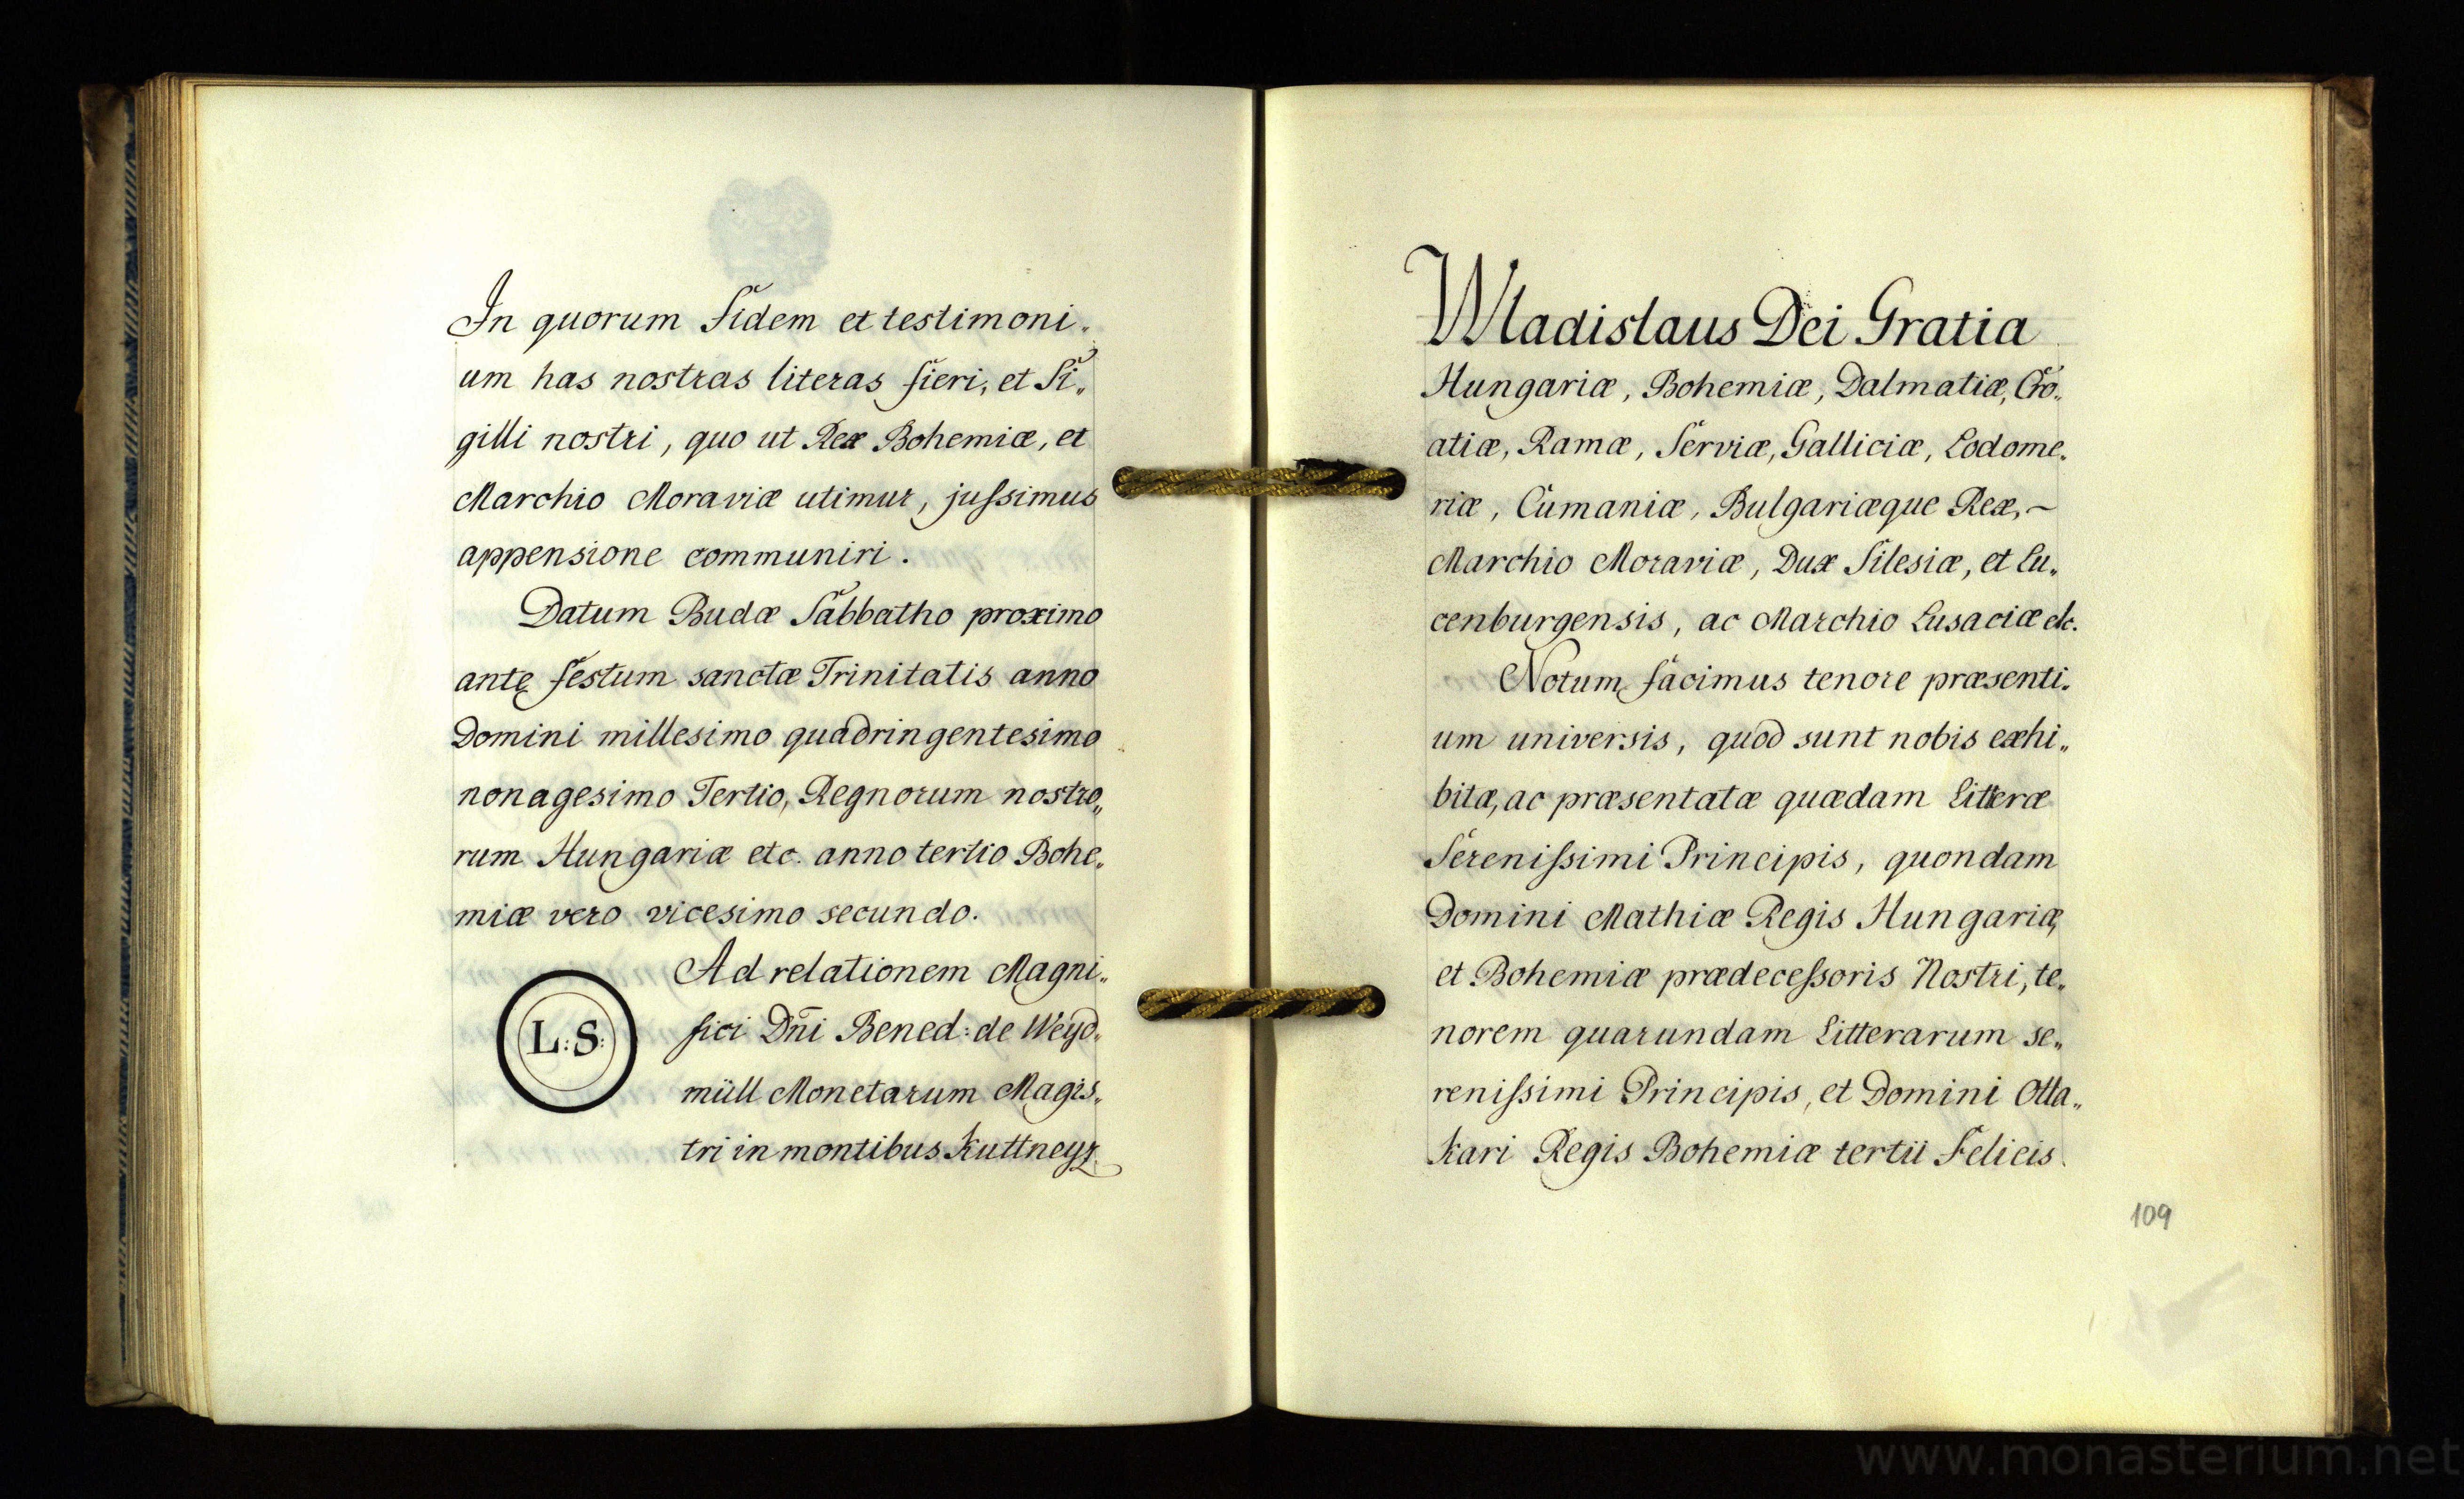 In quorum Fidem et testimoni„
um has nostras literas fieri, et Si„
gilli nostri, quo ut Rex Bohemiæ, et
Marchio Moraviæ utimur, juſsimus
appensione communiri.
Datum Budæ Sabbatho proximo
ante festum sanctæ Trinitatis anno
Domini millesimo quadringentesimo
nonagesimo Tertio, Regnorum nostro„
rum Hungariæ etc. anno tertio Bohe„
miæ vero vicesimo secundo.
Ad relationem Magni„
fici Dn̄i Bened: de Weyd„
müll Monetarum Magis„
tri in montibus Kuttneyz
L: S:
Wladislaus Dei Gratia
Hungariæ, Bohemiæ, Dalmatiæ, Cro„
atiæ, Ramæ, Serviæ, Galliciæ, Lodome„
riæ, Cumaniæ, Bulgariæque Rex, ~
Marchio Moraviæ, Dux Silesiæ, et Lu„
cenburgensis, ac Marchio Lusaciæ etc.
Notum facimus tenore præsenti„
um universis, quod sunt nobis exhi„
bitæ, ac præsentatæ quædam Litteræ
Sereniſsimi Principis, quondam
Domini Mathiæ Regis Hungariæ,
et Bohemiæ prædeceſsoris Nostri, te„
norem quarundam Litterarum se„
reniſsimi Principis, et Domini Otta„
kari Regis Bohemiæ tertii Felicis
109
www.monasterium.net